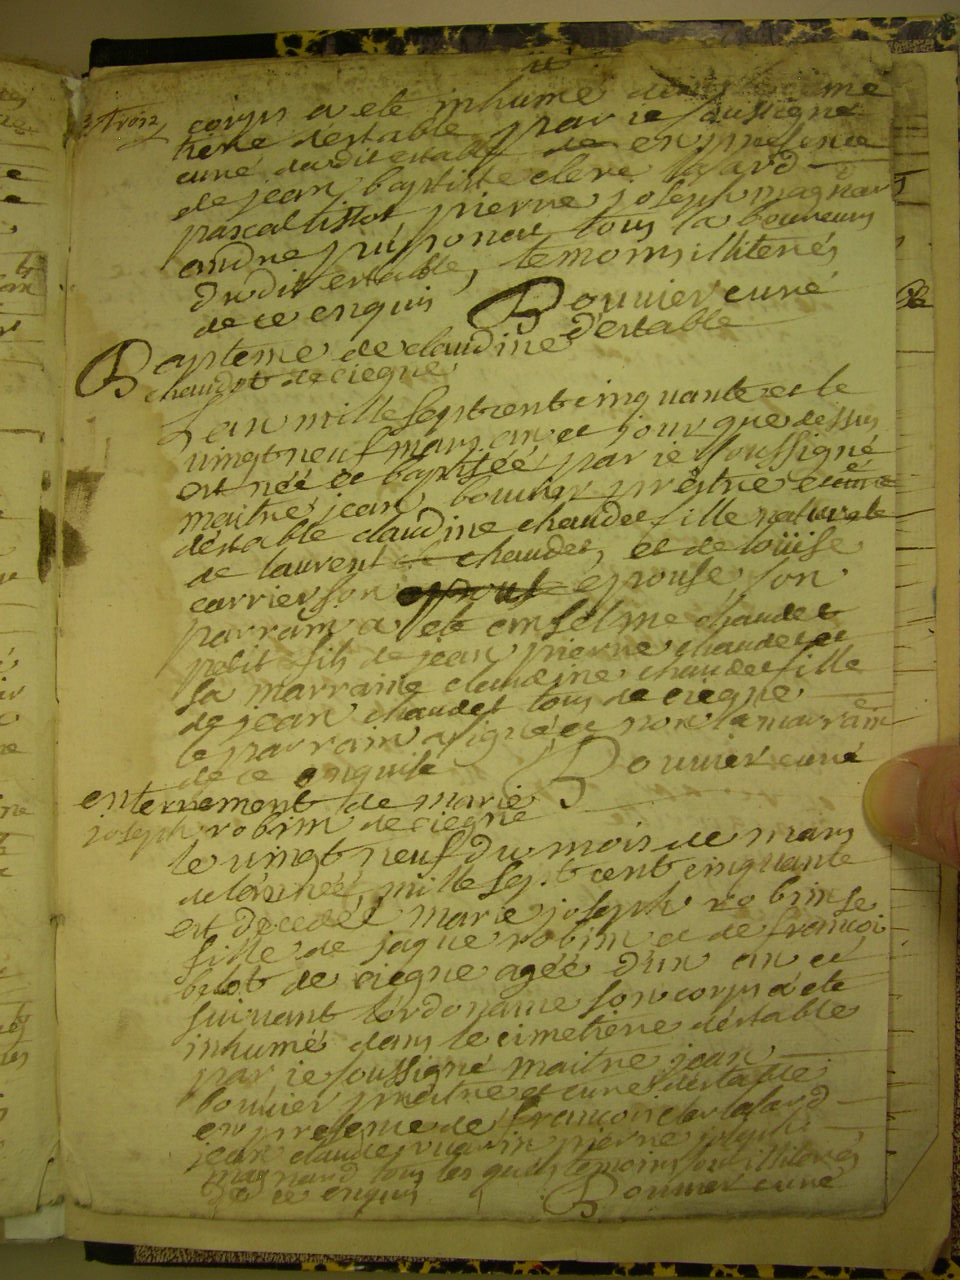 corps a eté inhumé dans le cime
tiere destable par ie sousigné
curé dudit estable de en presence
de jean baptiste clerc lafard
pascal tissot pierre joseph magnard
andre tous laboureurs
dudit estable, temoins illiterés
de ce enquis Bouvier curé
d'estable
Bapteme de claudine
chaudet de ciegne
Lan mille sept cent cinquante et le
vingt neuf mars an et jour que dessus
est née et baptisée par ie soussigné
maitre jean bouvier prêtre et curé
déstable claudine chaudet fille naturele
de laurent chaudet et de loüise
carrier son epouse son
parrain a eté emselme chaudet
petit fils de jean pierre chaudet et
sa marraine claudine chaudet fille
de jean chaudet tous de ciegne
le parrain a signé et non la marraine
de ce enquise Bouvier curé
enterrement de marie
joseph robim de ciegne
le vingt neuf du mois de mars
de l'année mille sept cent cinquante
est decedéé marie joseph robim
fille de jaque robim et de françoi
de ciegne agéé d'un an et
suivant l'ordonanse son corps a eté
inhumé dans le cimetiere déstable
par ie soussigné maitre jean
bouvier prêtre et curé destable
en presense de françoi clerc lafard
jean claude vuarin pierre joseph
magnard tous les quels temoins sont illiterés
de ce enquis Bouvier curé